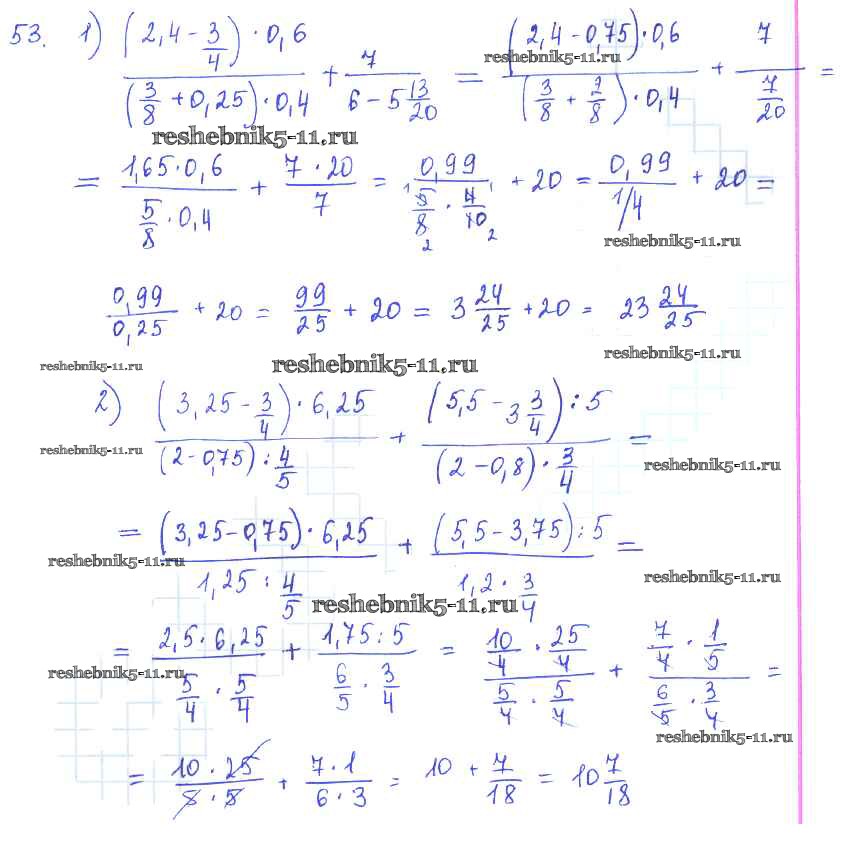 53. 1) ((2,4 - 3/4) · 0,6) / ((3/8 + 0,25) · 0,4) + 7 / (6 - 5 13/20) = ((2,4 - 0,75) · 0,6) / ((3/8 + 2/8) · 0,4) + 7 / (7/20) =
reshebnik5-11.ru
reshebnik5-11.ru
= (1,65 · 0,6) / (5/8 · 0,4) + (7 · 20) / 7 = 0,99 / (5/8 · 4/10) + 20 = 0,99 / (1/4) + 20 =
reshebnik5-11.ru
0,99 / 0,25 + 20 = 99/25 + 20 = 3 24/25 + 20 = 23 24/25
reshebnik5-11.ru reshebnik5-11.ru reshebnik5-11.ru
2) ((3,25 - 3/4) · 6,25) / ((2 - 0,75) : 4/5) + ((5,5 - 3 3/4) : 5) / ((2 - 0,8) · 3/4) =
reshebnik5-11.ru reshebnik5-11.ru
= ((3,25 - 0,75) · 6,25) / (1,25 : 4/5) + ((5,5 - 3,75) : 5) / (1,2 · 3/4) =
reshebnik5-11.ru reshebnik5-11.ru
reshebnik5-11.ru
= (2,5 · 6,25) / (5/4 · 5/4) + (1,75 : 5) / (6/5 · 3/4) = (10/4 · 25/4) / (5/4 · 5/4) + (7/4 · 1/5) / (6/5 · 3/4) =
reshebnik5-11.ru reshebnik5-11.ru
= (10 · 25) / (5 · 5) + (7 · 1) / (6 · 3) = 10 + 7/18 = 10 7/18